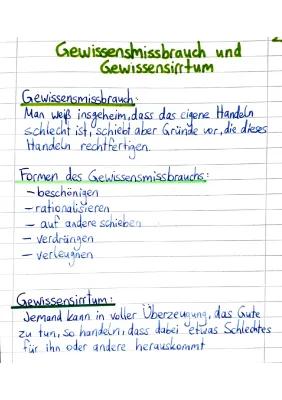 Gewissensmissbrauch und
Gewissensirrtum
Gewissensmissbrauch:
Man weiß insgeheim, dass das eigene Handeln
schlecht ist, schiebt aber Gründe vor, die dieses
Handeln rechtfertigen.
Formen des Gewissensmissbrauchs:
- beschönigen
- rationalisieren
- auf andere schieben
- verdrängen
- verleugnen
Gewissensirrtum:
Jemand kann in voller Überzeugung, das Gute
zu tun, so handeln, dass dabei etwas Schlechtes
für ihn oder andere herauskommt